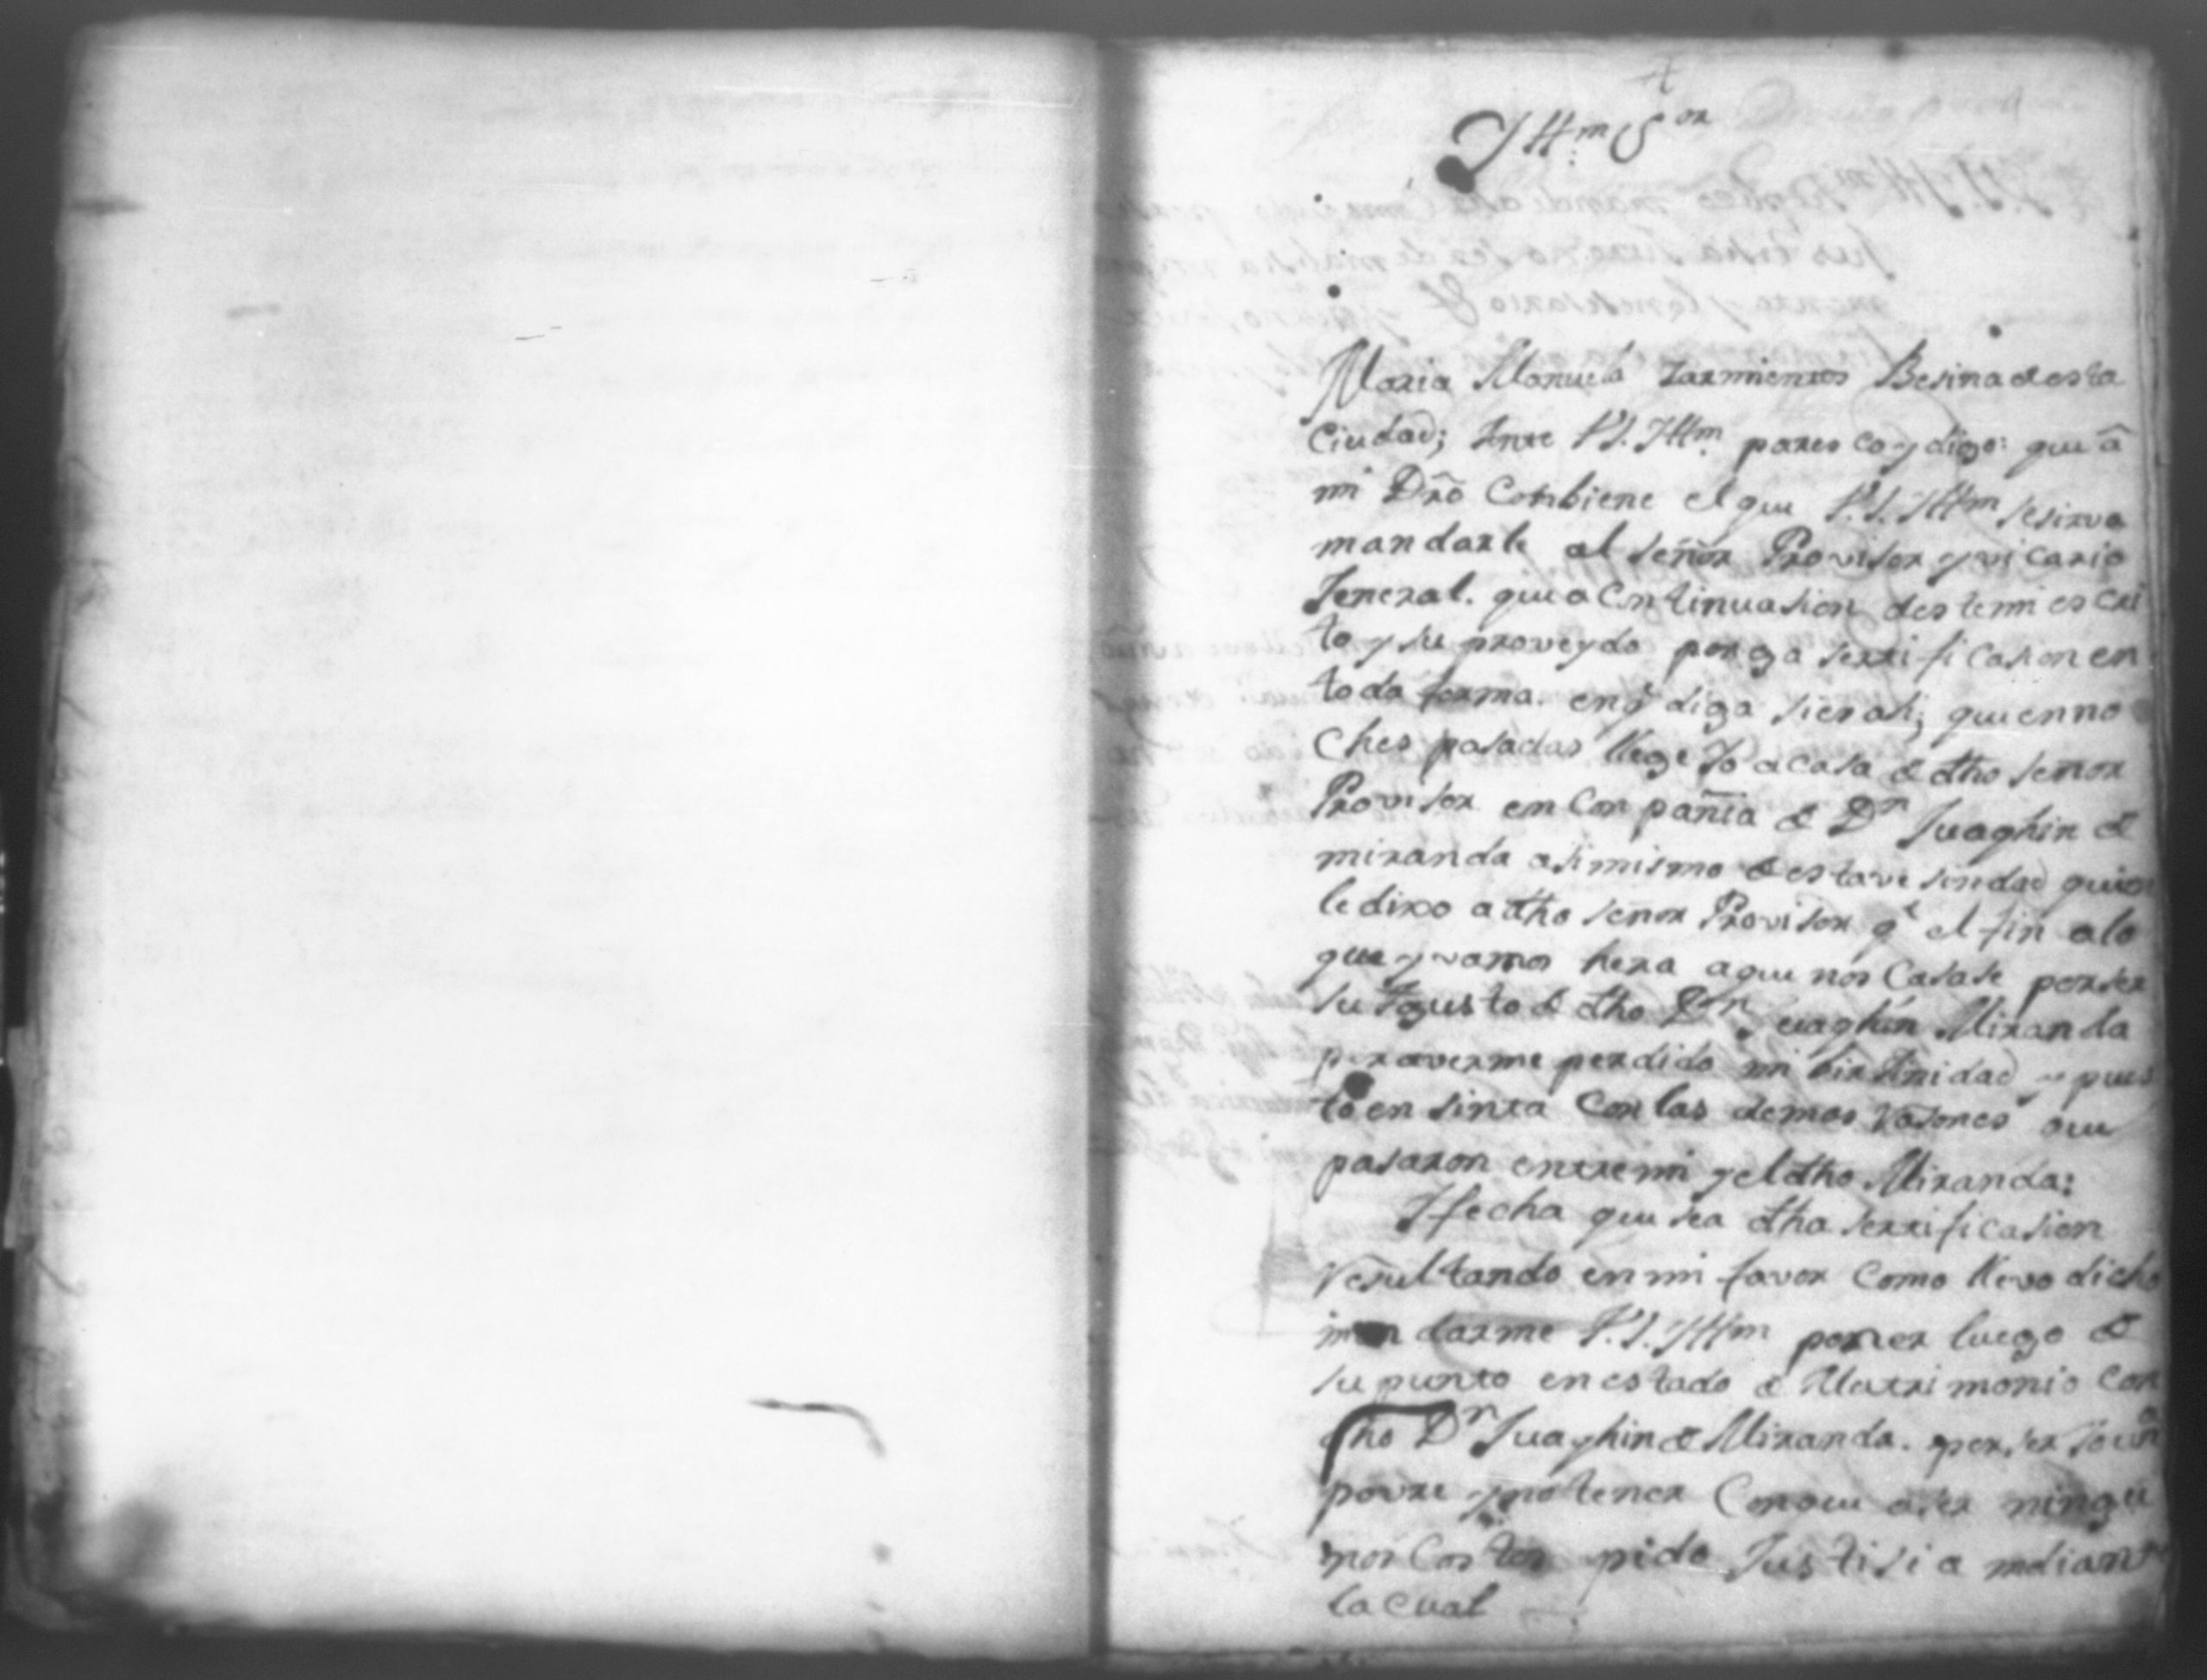 +
YIlt.m Sor
Maria Manuela Sarmientos Besina desta
Ciudad; Ante V.S. Iltm. paresco y digo: que â
mi Dr̃o Combiene el que V.S. Iltm se sirva
mandarle al señor Provisor y vicario
Jeneral. que a Continuasion deste mi escri
to y su proveydo ponga sertificasion en
toda forma. en q̃ diga si es asi; que en no
ches pasadas llege Yo a casa de dho señor
Provisor en Conpañia de Dn Juaqhin de
miranda asimismo de esta vesindad quien
le dixo a dho señor Provisor qe el fin a lo
que yvamos hera a que nos Casase por ser
su gusto de dho Dn Juaqhin Miranda
por averme perdido mi birginidad y pues
to en sinta Con las demas Rasones que
pasaron entre mi y el dho Miranda;
Y fecha que sea dha sertificasion
Resultando en mi favor Como llevo dicho
mandarme V.S. Iltm poner luego de
su punto en estado de Matrimonio Con
dho Dn Juaqhin de Miranda. por ser Yo una
povre y no tener Conque aser ningu
nos Costos pido Justisia mediante
la cual